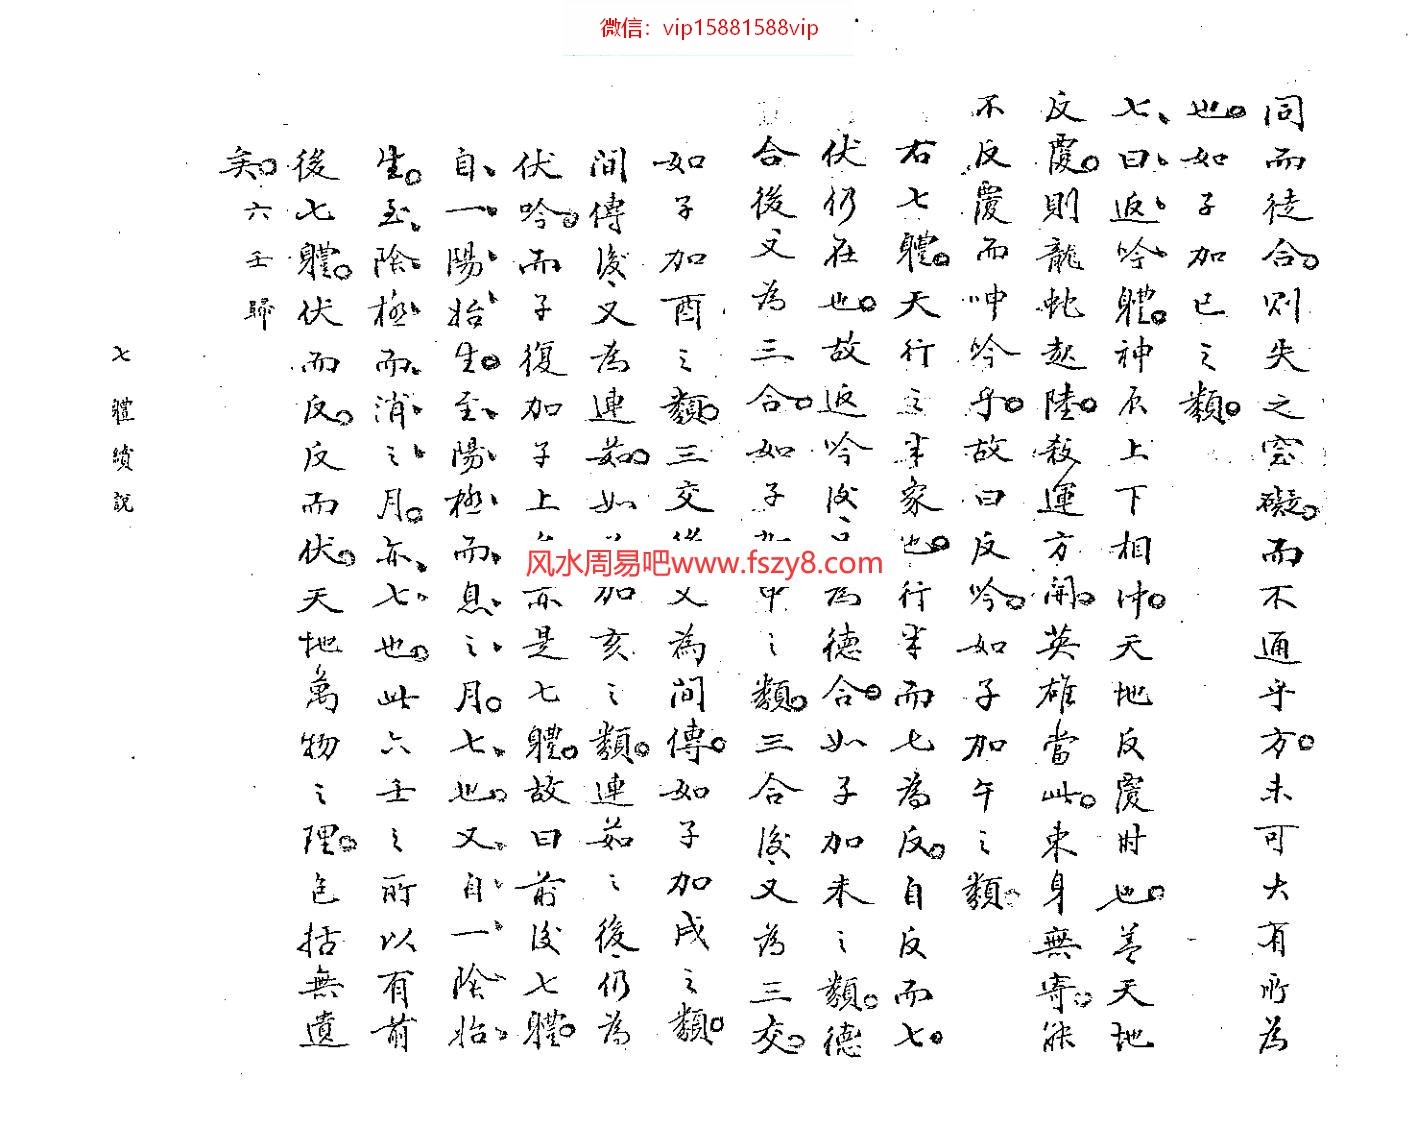 微信：vip15881588vip
同而徒合則失之窒礙。而不通乎方。未可大有所為
也。如子加巳之類。
七曰返吟體。神辰上下相沖。天地反覆时也。蓋天地
反覆。則龍虵起陸。殺運方開。英雄當此。束身無寄。能
不反覆而呻吟乎。故曰反吟。如子加午之類。
右七體。天行之半家也。行半而七為反。自反而七。
伏仍在也。故返吟後為德合。如子加未之類。德
合後又為三合。如子申之類。三合後又為三交。
如子加酉之類。三交又為间傳。如子加戌之類。
间傳後又為連茹。如加亥之類。連茹之後仍為
伏吟。而子復加子上亦是七體。故曰前後七體。
自一陽始生。至陽極而息之月。七也。又自一陰始
生。至陰極而消之月。亦七也。此六壬之所以有前
後七體。伏而反。反而伏。天地萬物之理。包括無遺
矣。六壬歸
七體續説
风水周易吧www.fszy8.com